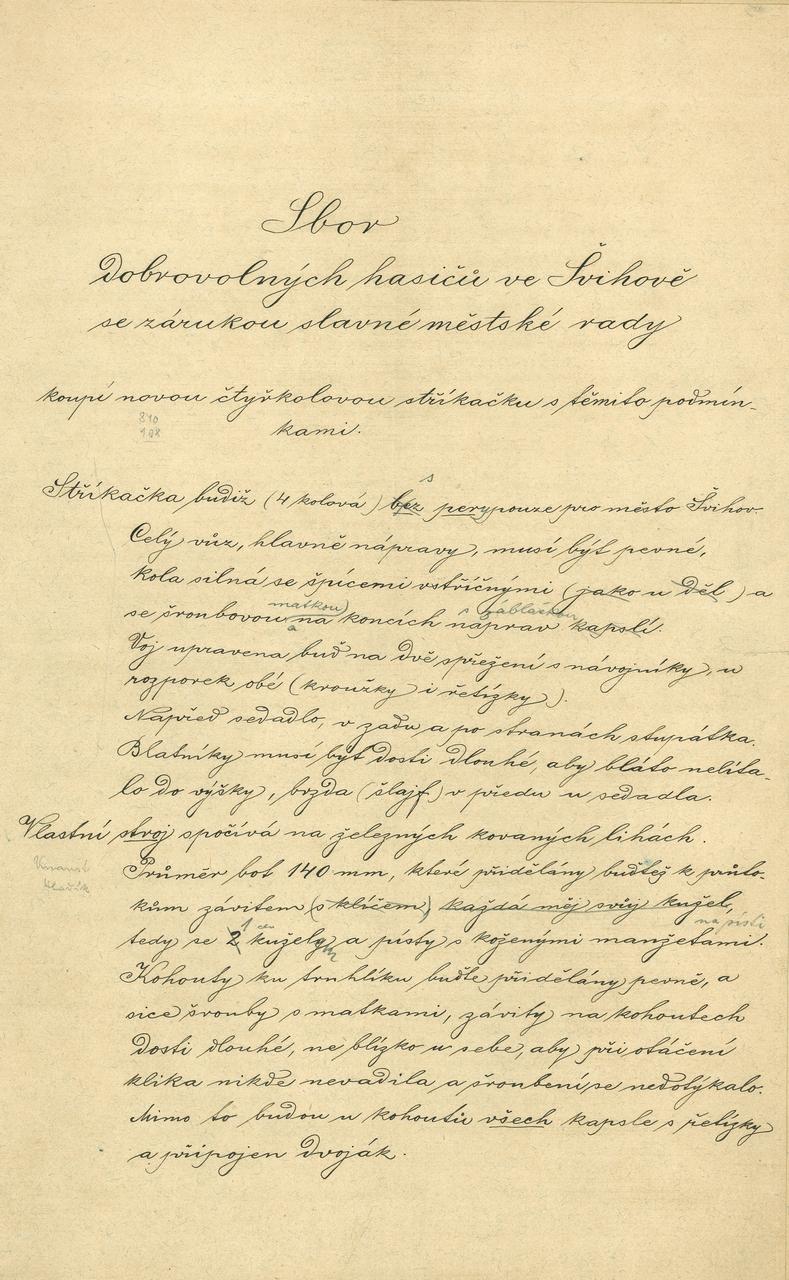 Sbor
dobrovolných hasičů ve Švihově
se zárukou slavné městské rady
koupí novou čtyřkolovou stříkačku s těmito podmín-
810
908
kami.
s
Stříkačka budiž (4 kolová) bez pery pouze pro město Švihov.
Celý vůz, hlavně nápravy, musí být pevné,
kola silná se špicemi vstříčnými (jako u děl) a
matkou)
se šroubovou na koncích náprav kapslí.
a
Voj upravena buď na dvě spřežení s návojníky, u
rozporek obé (kroužky i řetízky).
Napřed sedadlo, v zadu a po stranách stupátka.
Blatníky musí být dosti dlouhé, aby bláto nelíta-
lo do výšky, brzda (šlajf) v předu u sedadla.
Vlastní stroj spočívá na železných kovaných lihách.
Průměr bot 140 mm, které přidělány budtěž k průto-
kům závitem (s klíčem) každá měj svůj kužel,
na písti
tedy se 2 kužely a písty s koženými manžetami.
1
Kohouty ku truhlíku buďte přidělány pevně, a
sice šrouby s matkami, závity na kohoutech
dosti dlouhé, ne blízko u sebe, aby při otáčení
klika nikde nevadila a šroubení se nedotýkalo.
Mimo to budou u kohoutů všech kapsle s řetízky
a připojen dvoják.